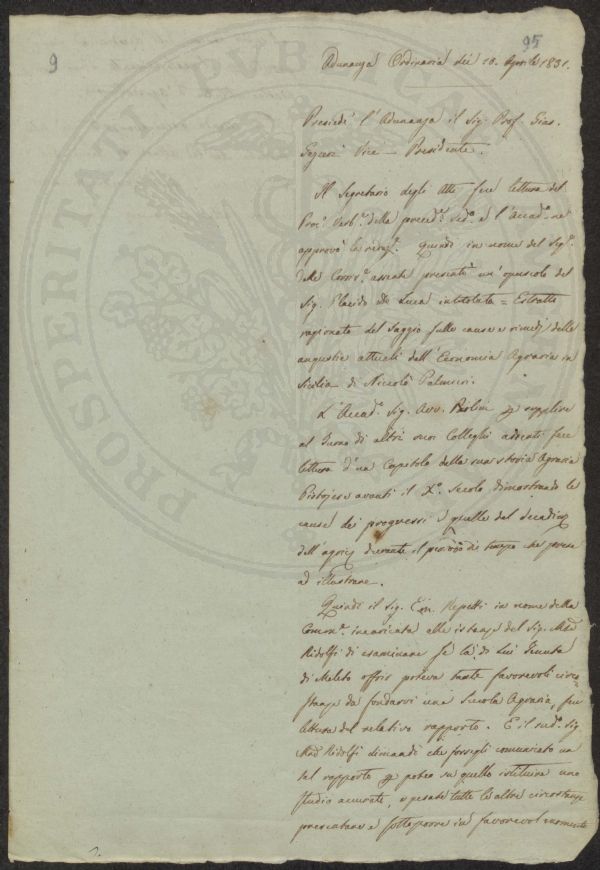 9
95
Adunanza Ordinaria dei 10. Aprile 1831.
Presiedé l'Adunanza il Sig. Prof. Gius.
Gazzeri Vice-Presidente.
Il Segretario degli Atti fece lettura del
Proc. Verb. della preced. sed. e l'Accad. ne
approvò la redaz. Quindi in nome del Sig.
delle Corris. assente presentò un'opuscolo del
Sig. Placido De Luca intitolato = Estratto
ragionato del Saggio sulle cause e rimedj delle
angustie attuali dell'Economia Agraria in
Sicilia di Niccolò Palmeri.
L'Accad. Sig. Avv. Paolini per supplire
al turno di altri suoi Colleghi assenti fece
lettura d'un Capitolo della sua storia Agraria
Pistojese avanti il X.° Secolo, dimostrando le
cause dei progressi e quelle del decadim.
dell'agric. durante il periodo di tempo che prese
ad illustrare.
Quindi il Sig. Em. Repetti in nome della
Comm. incaricata alle istanze del Sig. March.
Ridolfi di esaminare se la di Lui Tenuta
di Meleto offrir poteva tante favorevoli circo=
stanze da fondarvi una Scuola Agraria, fece
lettura del relativo rapporto. E il sud. Sig.
March. Ridolfi dimandò che fossegli comunicato un
tal rapporto per poter su quello istituire uno
studio accurato, e pesate tutte le altre circostanze
presentare e sottoporre in favorevol momento
PROSPERITATI PUBLICAE